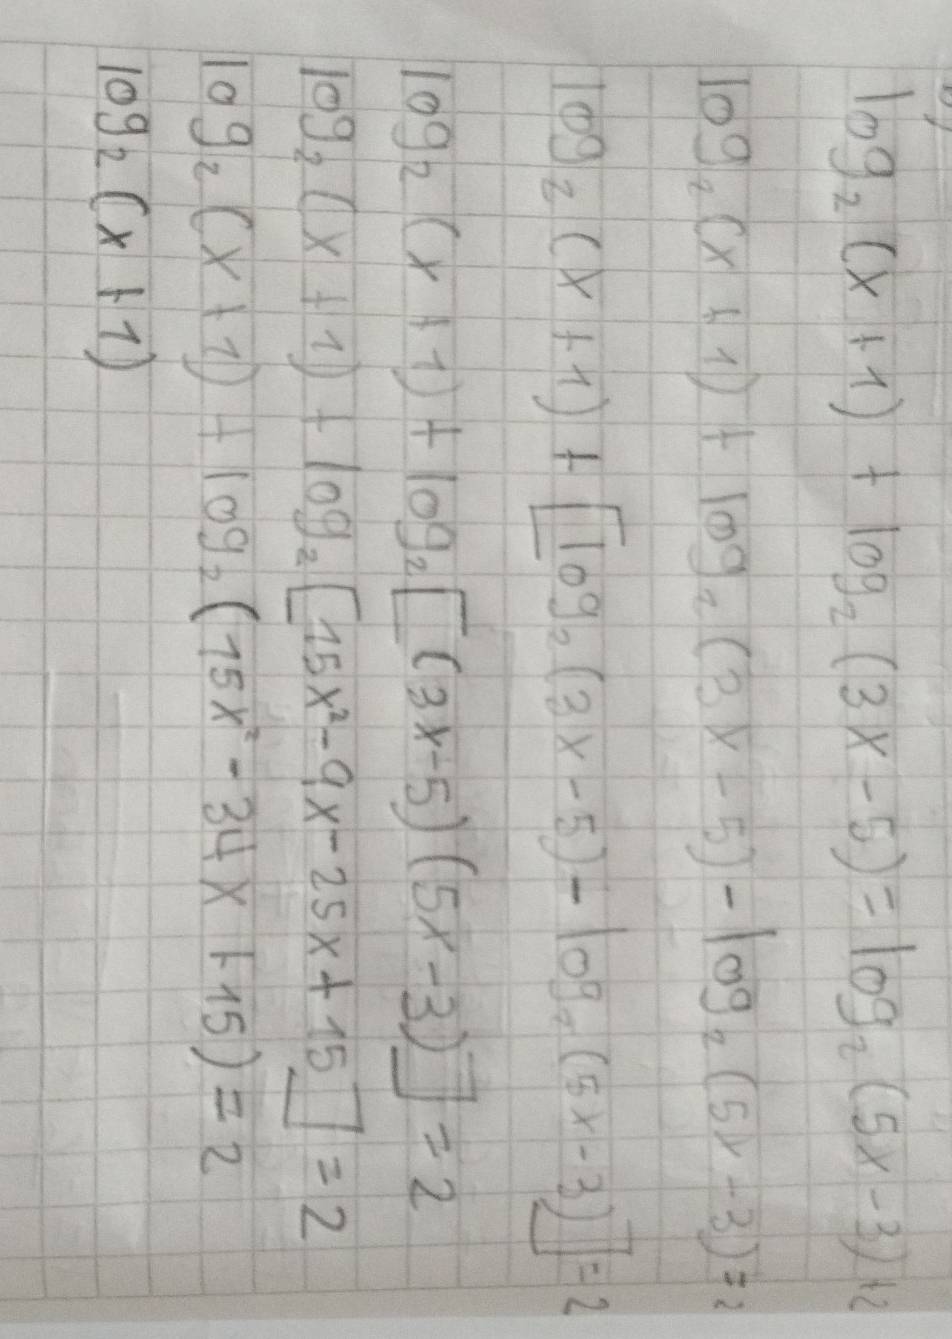 log₂ (x + 1) + log₂ (3x - 5) = log₂ (5x - 3) + 2
log₂ (x + 1) + log₂ (3x - 5) - log₂ (5x - 3) = 2
log₂ (x + 1) + [log₂ (3x - 5) - log₂ (5x - 3)] = 2
log₂ (x + 1) + log₂ [(3x - 5) (5x - 3)] = 2
log₂ (x + 1) + log₂ [15x² - 9x - 25x + 15] = 2
log₂ (x + 1) + log₂ (15x² - 34x + 15) = 2
log₂ (x + 1)